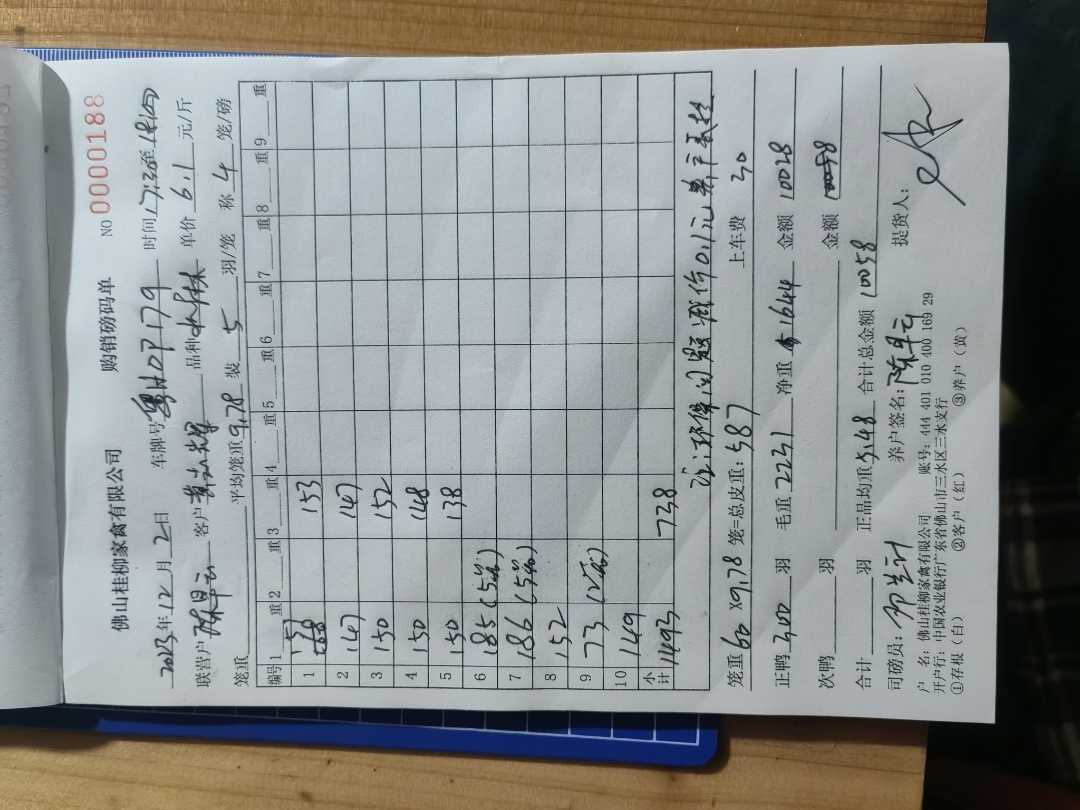 佛山桂柳家禽有限公司 购销磅码单 NO 0000188
2023年12月2日 车牌号粤H0P179 时间17:30至18:
联营户陈旦云 客户黄云耀 品种 单价6.1元/斤
笼重 平均笼重9.78装5羽/笼 称4笼/磅
编号 1 重 2 重 3 重 4 重 5 重 6 重 7 重 8 重 9 重
1 151 153
2 147 147
3 150 152
4 150 148
5 150 138
6 185 (5笼)
7 186 (5笼)
8 152
9 73 (2笼)
10 149
小计 1493 738
注:环保问题减价0.1元养户承担
笼重60×9.78笼=总皮重:587 上车费 30
正鸭300羽 毛重2231 净重1644 金额10028
次鸭 羽 金额
合计 羽 正品均重5.48 合计总金额10058
司磅员: 养户签名:陈旦云 提货人:
户 名:佛山桂柳家禽有限公司 账号:444 401 010 400 169 29
开户行:中国农业银行广东省佛山市三水区三水支行
①存根(白) ②客户(红) ③养户(黄)